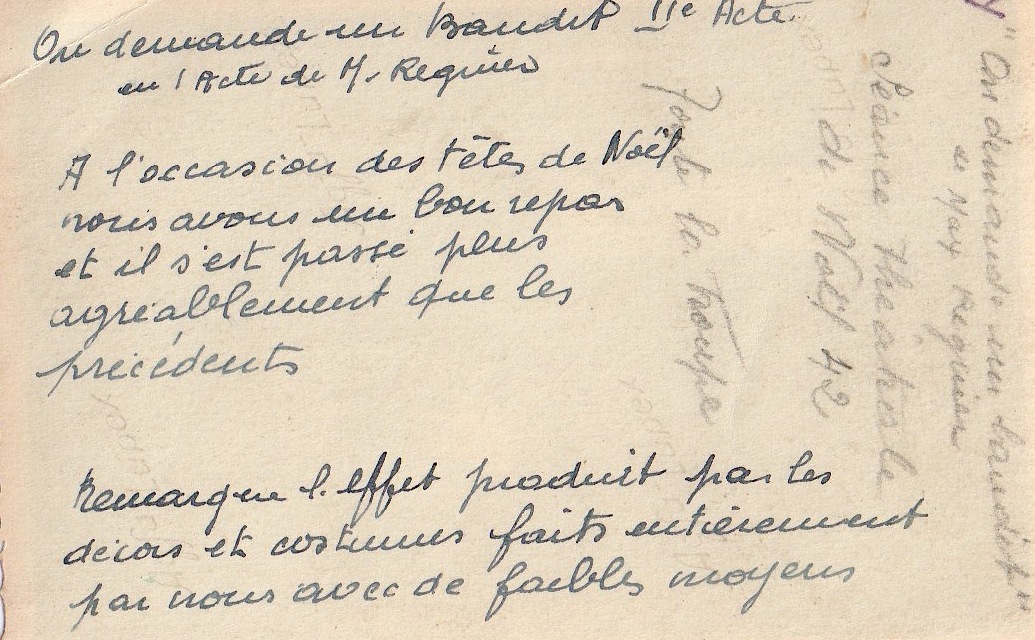 On demande un Bandit IIe Acte
en 1 Acte de M. Regnier
A l'occasion des fêtes de Noël
nous avons un bon repas
et il s'est passé plus
agréablement que les
précédents
Remarque l'effet produit par les
décors et costumes faits entièrement
par nous avec de faibles moyens
"On demande un bandit"
de Max Regnier
Séance théâtrale
de Noël 42
par la Troupe